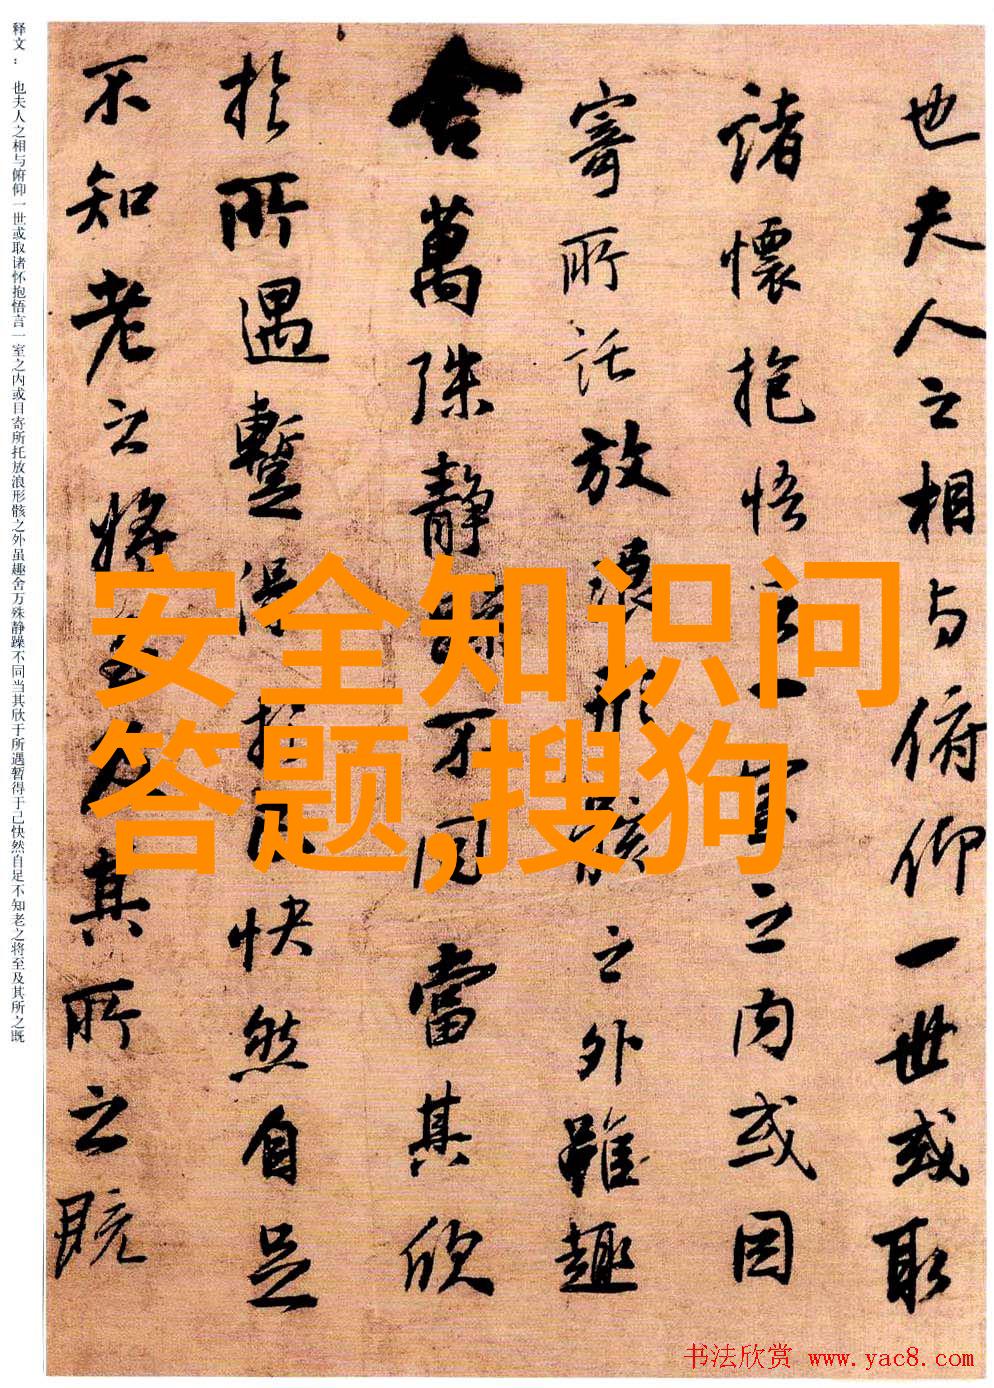 也夫人之相与俯仰一世或取
諸懷抱悟言一室之内或因
寄所託放浪形骸之外雖趣
舍萬殊静躁不同當其欣
於所遇蹔得於己快然自足
不知老之將至及其所之既
释文： 也夫人之相与俯仰一世或取诸怀抱悟言一室之内或目寄所托放浪形骸之外虽趣舍万殊静躁不同当其欣于所遇暂得于己快然自足不知老之将至及其所之既
安全知识问
答题,搜狗
书法欣赏 www.yac8.com